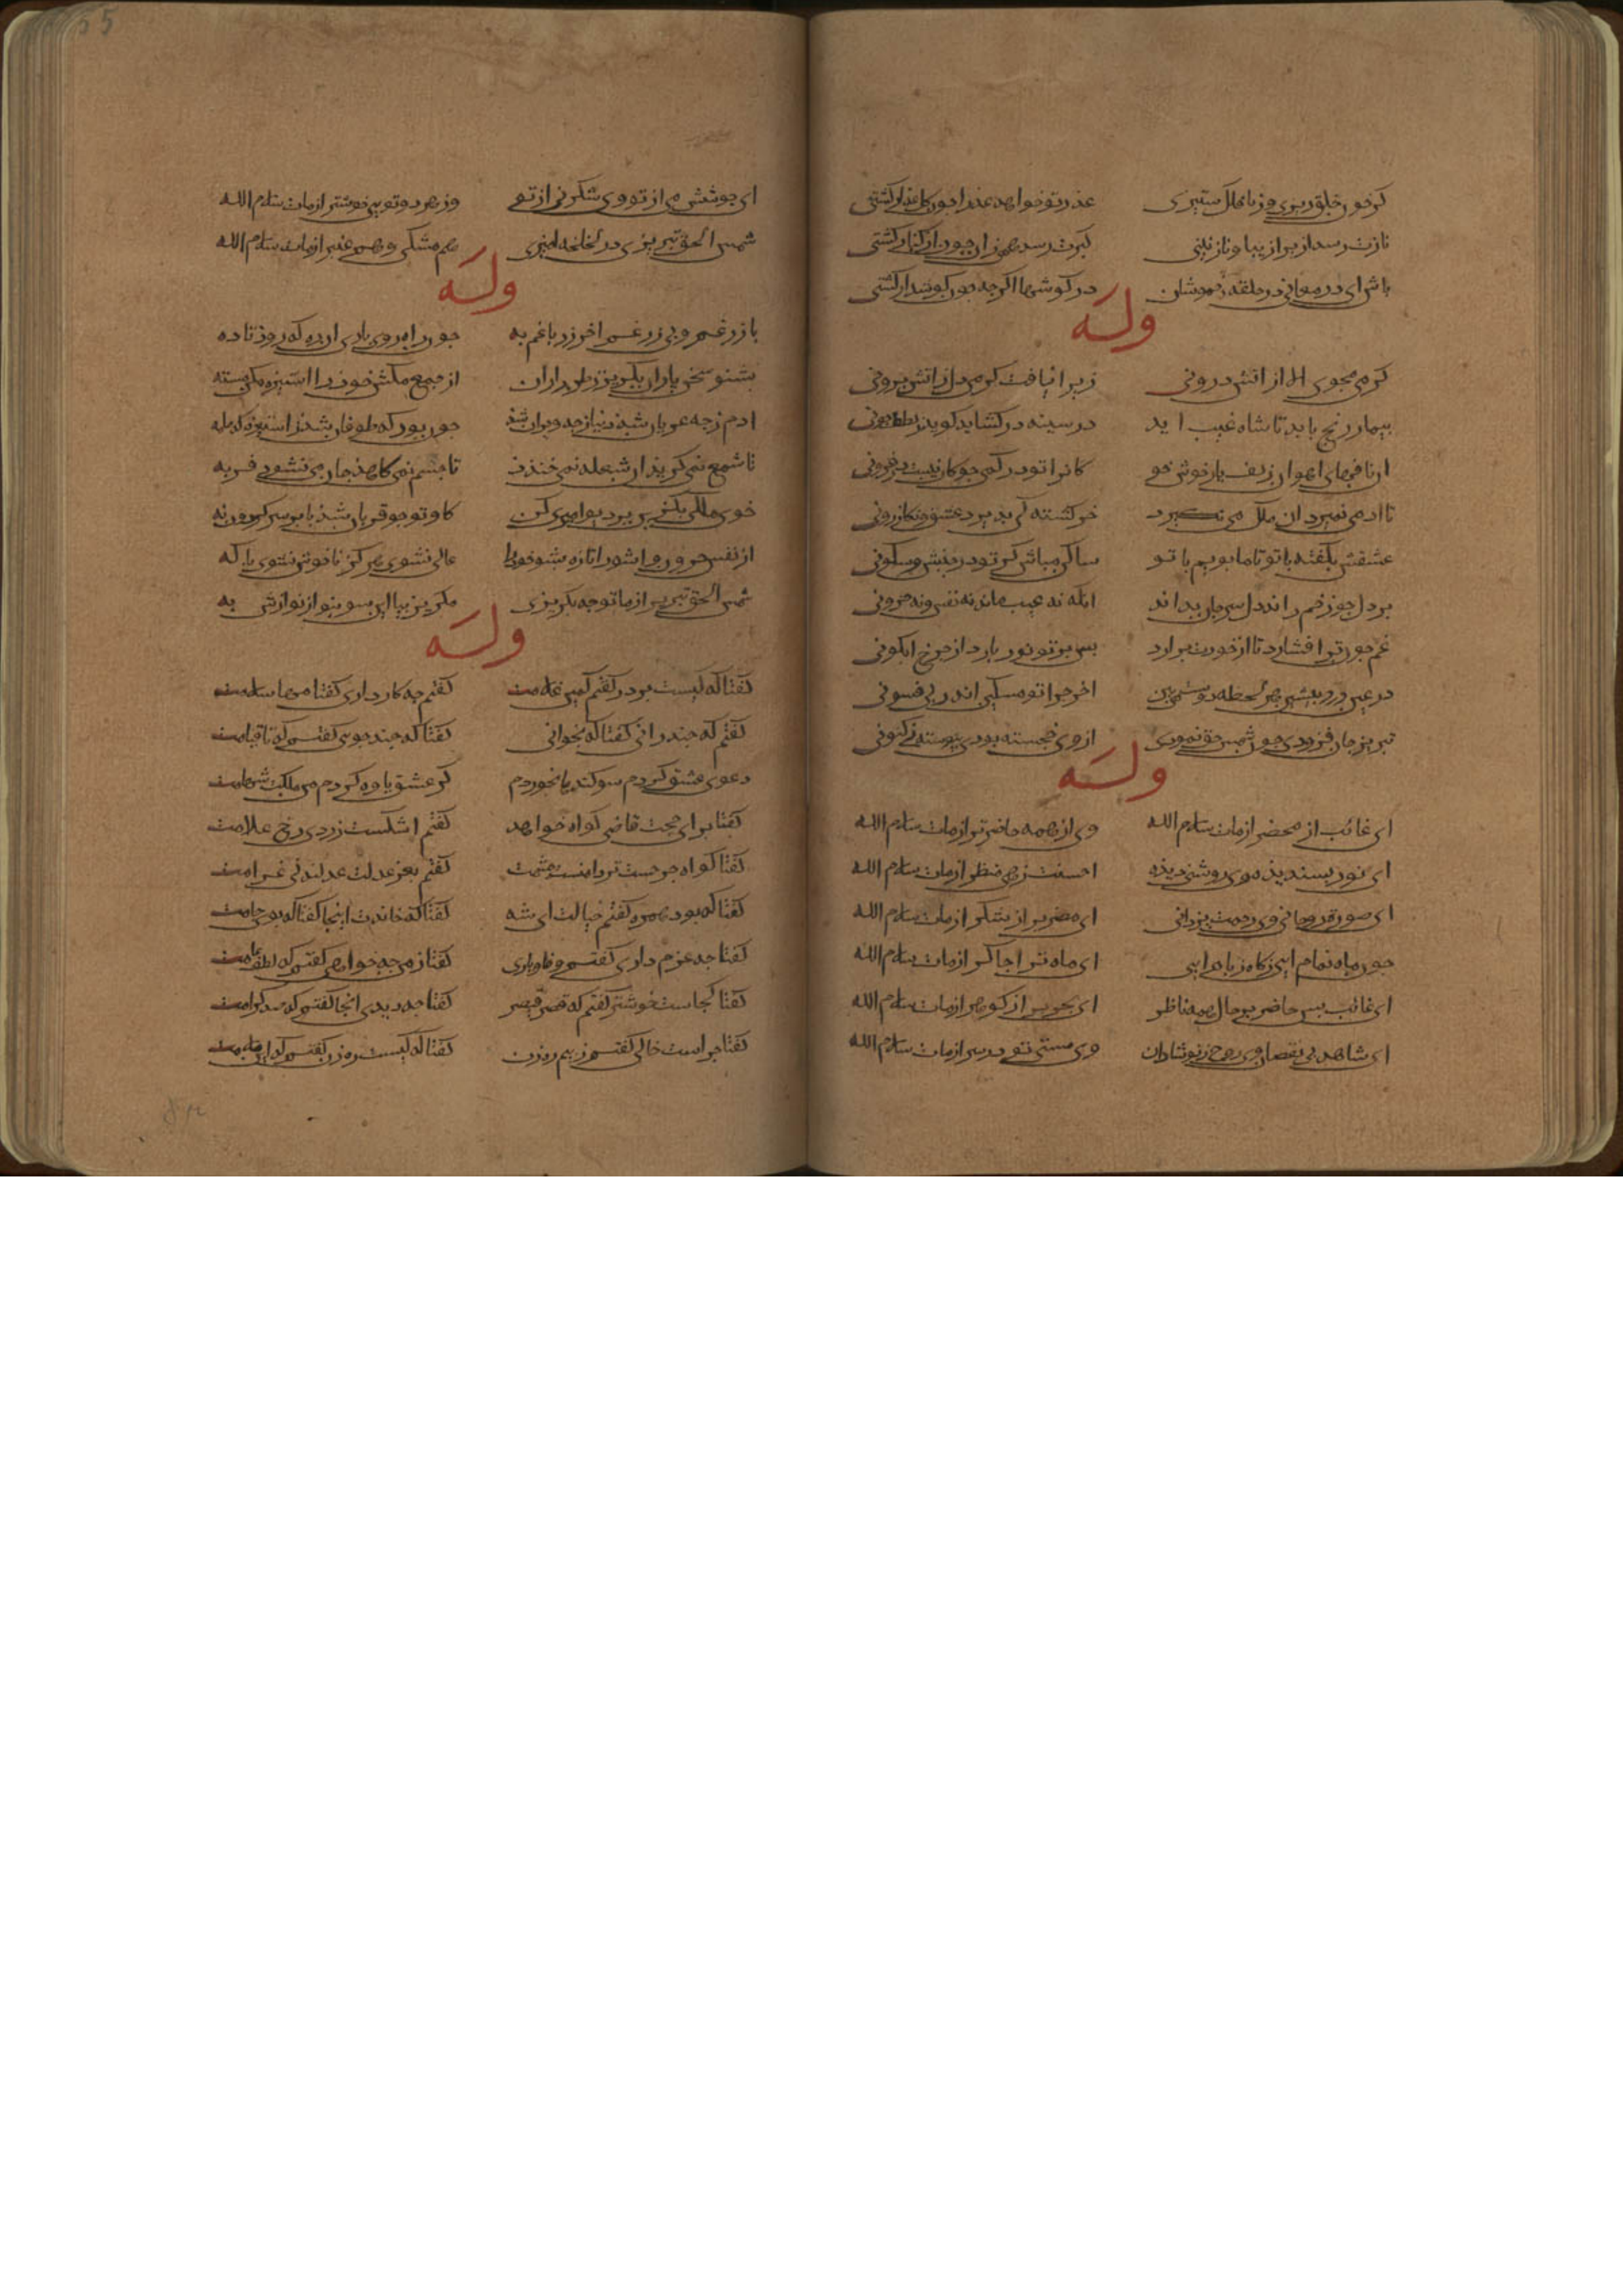 کر خون خلق ریزی وز با فلک ستیزی عذر تو خواهد عذرا چون کلعذار کشتی
نازت رسد ازیرا زیبا و نازنینی کبرت رسد همی زان چون از کنار کشتی
باش ای در معانی در حلقه خموشان در کوشها اکر چه چون کوشوار کشتی
وله
کرمی مجوی الا از اتش درونی زیرا نیافت کرمی دل ز اتش برونی
بیمار رنج باید تا شاه غیب اید در سینه در کشاید کوید ز لطف چونی
ان نافهای اهوان زلف یار خوش خو ان را تو در کمی جو کان نیست در فزونی
تا ادمی نمیرد ان ملک می نکیرد
عشقش بکفته با تو تا ما بویم با تو ساکن مباش کر تو در جنبش و سکونی
بر دل چو زخم راند دل سر جان بداند انکه نه عیب ماند نه نفس و نه حرونی
غم چون ترا فشارد تا از خودت برارد پس بر تو نور بارد از چرخ ابکونی
در عین درد بنشین هر لحظه دوست می بین اخر چرا تو مسکین اندر پی فسونی
تبریز جان فزودی چون شمس حق نمودی از وی خجسته بودی پیوسته نی کنونی
وله
ای غائب از محضر از مات سلام الله وی از همه حاضرتر از مات سلام الله
ای نور پسندیده وی روشنی دیده احسنت زهی منظر از مات سلام الله
ای صورة روحانی وی رحمت یزدانی ای مضر پر از شکر از مات سلام الله
چون ماه تمام ایی ز کاه ز بام ایی ای ماه ترا چاکر از مات سلام الله
ای غائب بس حاضر بر حال همه ناظر ای بحر پر از کوهر از مات سلام الله
ای شاهد بی نقصان وی روح ز تو شادان وی مستی تو در سر از مات سلام الله
ای جوشش می از تو وی شکر نی از تو وز هر دو تویی خوشتر از مات سلام الله
شمس الحق تبریزی در لخلخه امیزی هم مشکی و هم عنبر از مات سلام الله
وله
با زر غم و بی زر غم اخر زر با غم به چون راه روی باری راهی که برد تا ده
بشنو سخن یاران بکریز ز طراران از جمع مکش خود را استیزه مکن مسته
ادم ز چه عریان شد دنیا ز چه ویران شد چون بود که طوفان شد ز استیزه که با مه
تا شمع نمی کرید ان شعله نمی خندد تا جسم نمی کاهد جان می نشود فربه
خوی ملکی بکزین بر دیو امیری کن کاو تو چو قربان شد پا بر سر کردون نه
عالی نشوی هرکز تا خوش نشوی با که
شمس الحق تبریز از ما تو چه بکریزی مکریز بیا این سو بنواز نوازش به
وله
کفتا که کیست بر در کفتم کمین غلامت کفتم چه کار داری کفتا مها سلامت
کفتم که چند رانی کفتا که بخوانی کفتا که چند جوشی کفتم که تا قیامت
دعوی عشق کردم سوکندها بخوردم کز عشق یاوه کردم من ملکت شهامت
کفتا برای حجت قاضی کواه خواهد کفتم اشکست زردی رخ علامت
کفتا کواه جرحست تردامنست چشمت کفتم بعز عدلت عدلند بی غرامت
کفتا که بود همره کفتم خیالت ای شه کفتا که خاندت اینجا کفتا که بوی جامت
کفتا چه عزم داری کفتم وفا و یاری کفتا ز من چه خواهی کفتم که لطف عامت
کفتا کجاست خوشتر کفتم که قصر قیصر کفتا چه دیدی انجا کفتم که صد کرامت
کفتا چراست خالی کفتم ز بیم رهزن کفتا که کیست رهزن کفتم که این ملامت